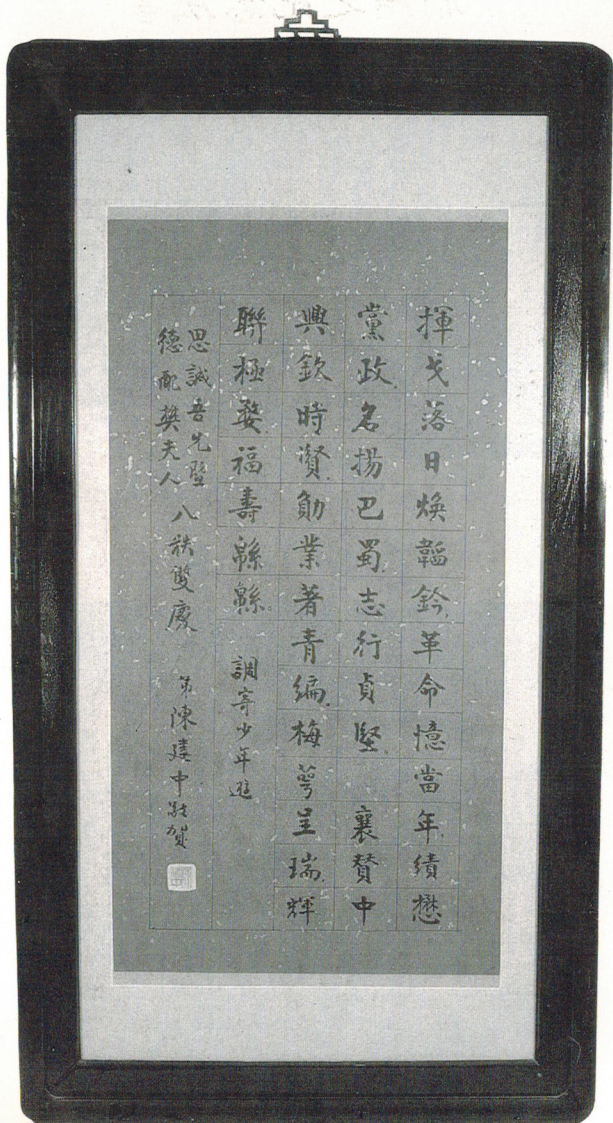 揮戈落日煥韜鈐。革命憶當年。績懋
黨政。名揚巴蜀。志行貞堅。 襄贊中
興欽時賢。勛業著青編。梅萼呈瑞。輝
聯極婺。福壽緜緜。 調寄少年遊
思誠吾兄暨
德配樊夫人 八秩雙慶
弟陳建中敬賀